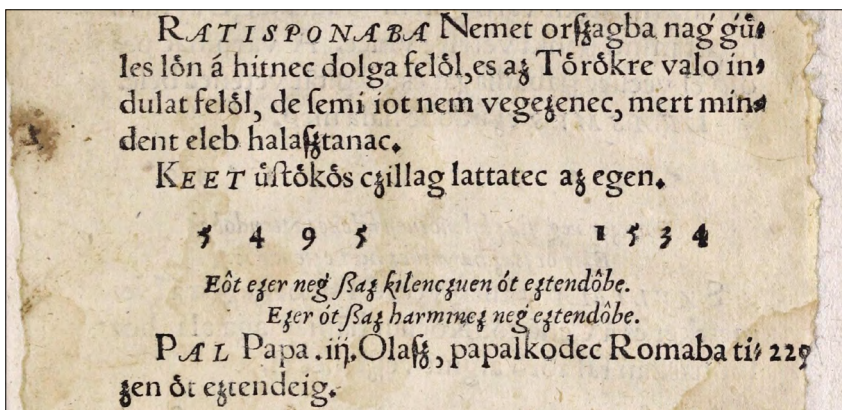 RATISPONABA Nemet orſʒagba nag̓ g̓ů⸗
les lo̊n á hitnec dolga felo̊l, es aʒ To̊ro̊kre valo in⸗
dulat felo̊l, de ſemi iot nem vegeʒenec, mert min⸗
dent eleb halaſʒtanac.
KEET ůſto̊ko̊s cʒillag lattatec aʒ egen.
5 4 9 5 1 5 3 4
Eôt eʒer neg̓ ßaʒ kilencʒuen ót eʒtendôbe.
Eʒer ót ßaʒ harmincʒ neg̓ eʒtendôbe.
PAL Papa .iij. Olaſʒ, papalkodec Romaba ti⸗ 229
ʒen o̊t eʒtendeig.